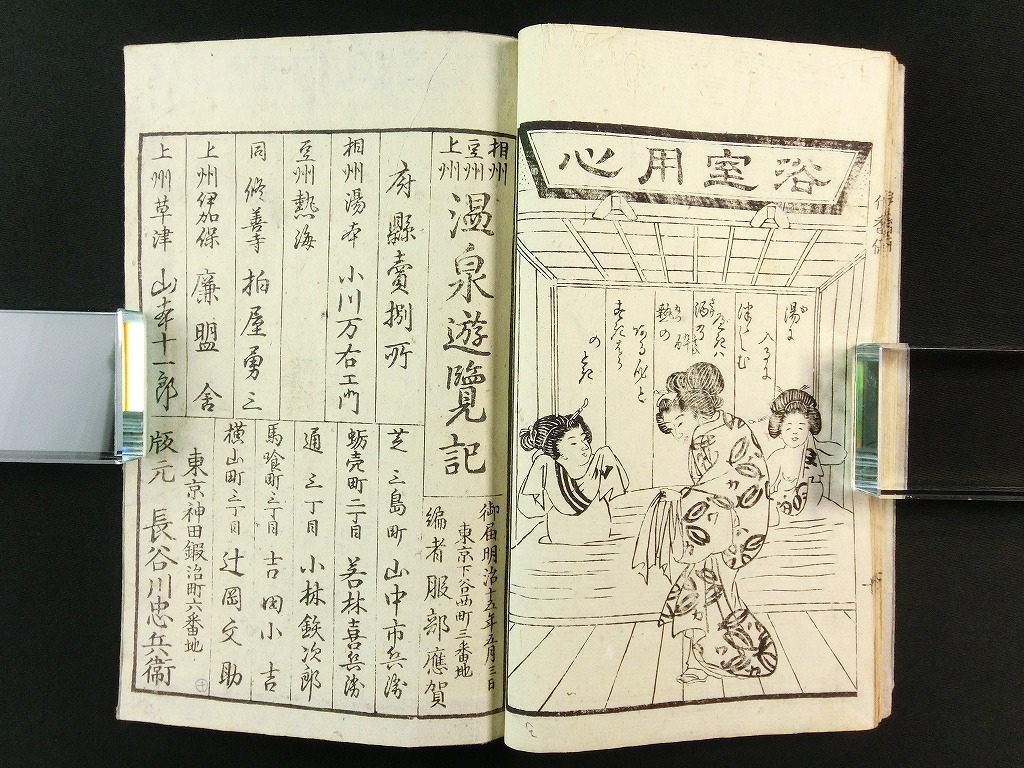 浴室用心
湯に
入るに
つゝしむ
べきハ
酒の
熱の
のとき
相州
豆州
上州
温泉遊覧記
御届明治十五年五月三日
東京下谷西町三番地
編者 服部應賀
府縣賣捌所
芝三島町 山中市兵衛
相州湯本 小川万右エ門
蛎売町二丁目 若林喜兵衛
豆州熱海
通三丁目 小林鉄次郎
同修善寺 柏屋勇三
馬喰町三丁目 吉田小吉
上州伊加保 廉盟舎
横山町三丁目 辻岡文助
上州草津 山本十一郎
東京神田鍛冶町六番地
版元 長谷川忠兵衛